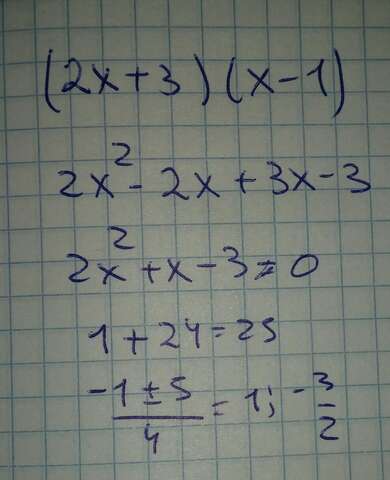 (2x+3)(x-1)
2x² - 2x + 3x - 3
2x² + x - 3 = 0
1 + 24 = 25
-1 ± 5 / 4 = 1; -3/2